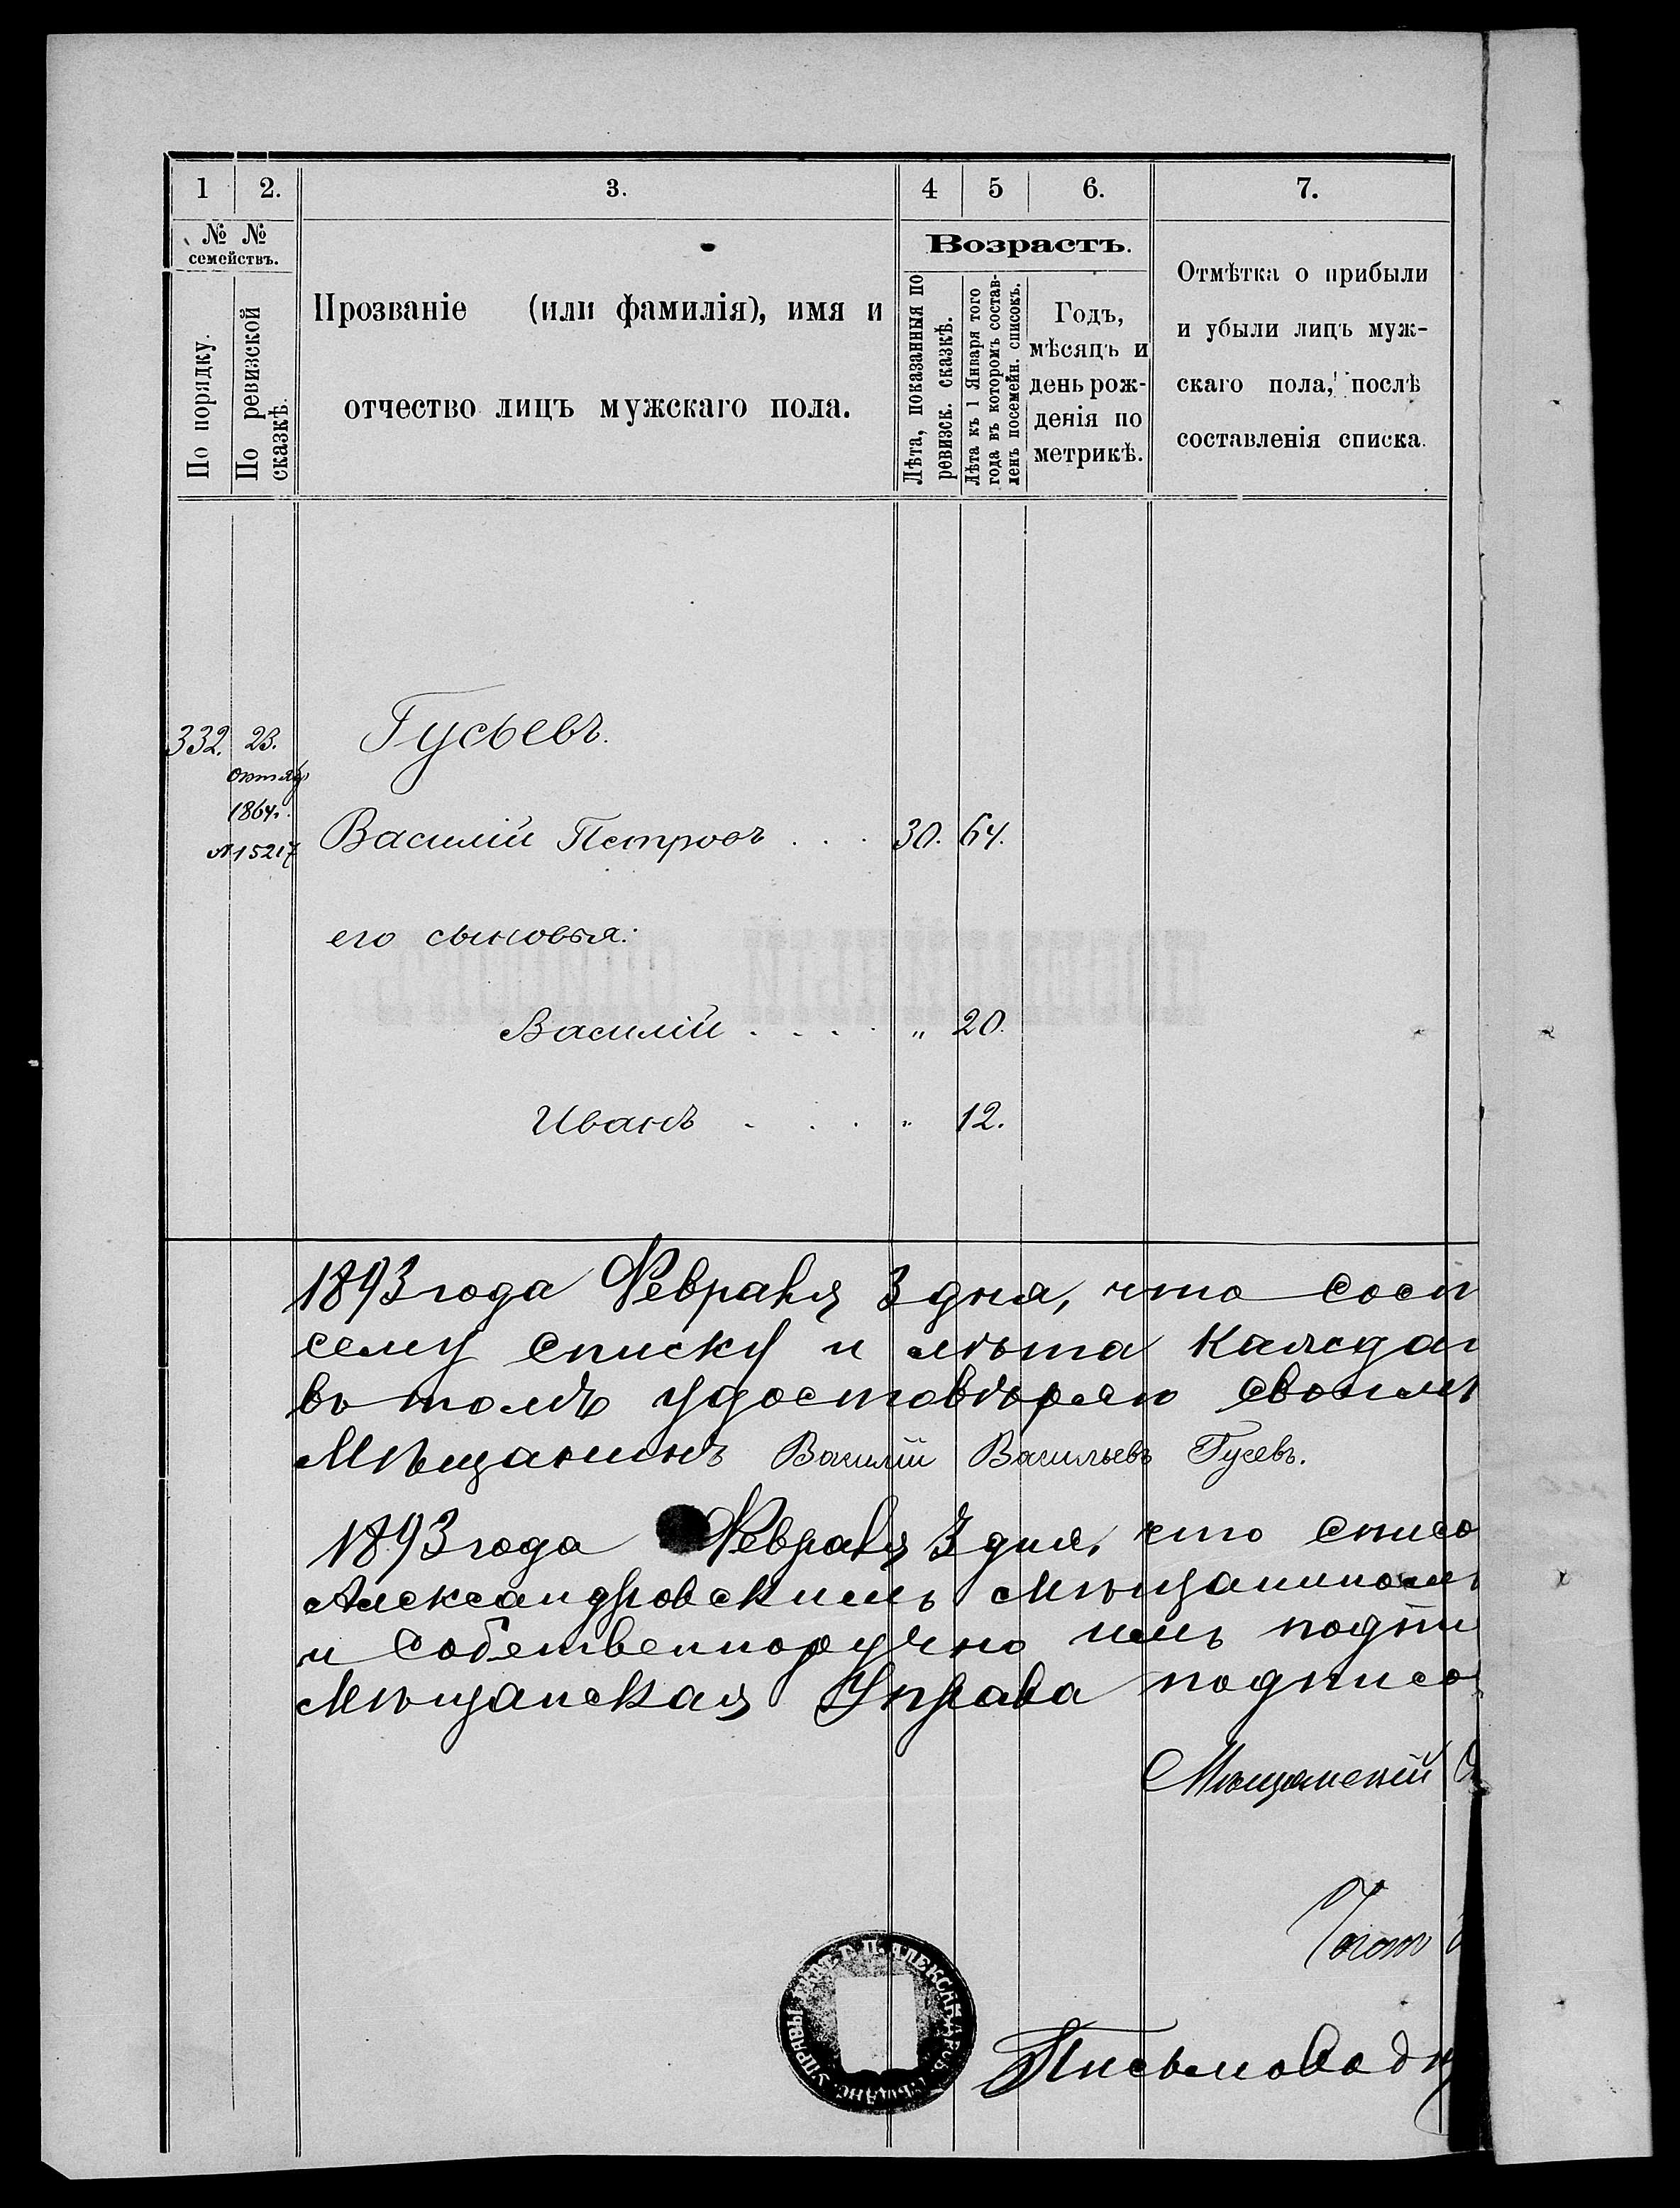 1 2. 3. 4 5 6. 7.
№ №
семействъ.
По порядку.
По ревизской
сказкѣ.
Прозваніе (или фамилія), имя и
отчество лицъ мужскаго пола.
Возрастъ.
Лѣта, показанныя по
ревизск. сказкѣ.
Лѣта къ 1 Января того
года въ которомъ состав-
ленъ посемейн. списокъ.
Годъ,
мѣсяцъ и
день рож-
денія по
метрикѣ.
Отмѣтка о прибыли
и убыли лицъ муж-
скаго пола, послѣ
составленія списка.
332. 23. Гусьевъ.
октяб
1864.
№ 15217 Василій Петровъ . . . 30. 64.
его сыновья:
Василій . . . . „ 20.
Иванъ . . . „ 12.
1893 года Февраля 3 дня, что
сему списку и лѣта кажда
въ томъ удостовѣряю своимъ
Мѣщанинъ Василій Васильевъ Гусевъ.
1893 года Февраля 3 дня, что списо
Александровскимъ Мѣщаниномъ
и собственноручно имъ подпи
Мѣщанская Управа подписо
Мѣщанскій
Письмовод
АЛЕКСАНДРОВ. МѢЩАНС. УПРАВЫ